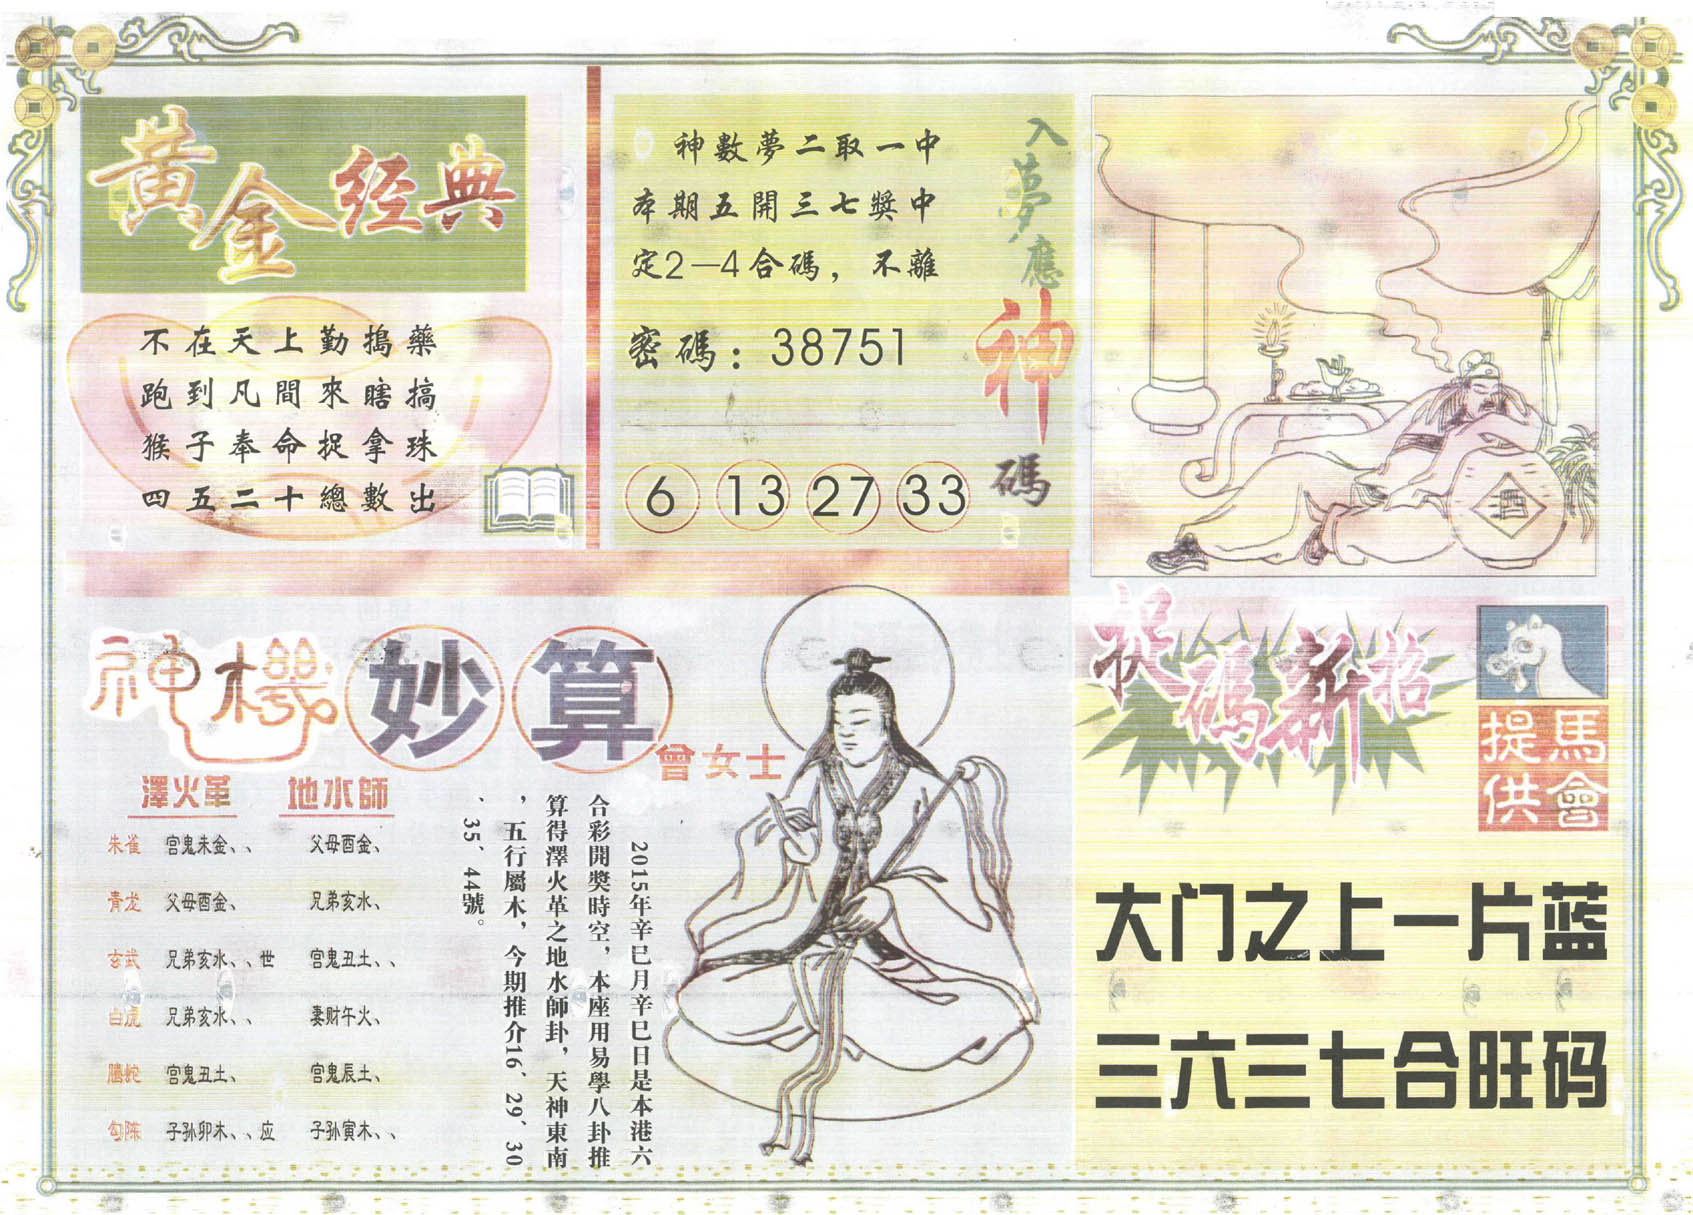 黃金经典
不在天上勤搗藥
跑到凡間來瞎搞
猴子奉命捉拿珠
四五二十總數出
入夢應神碼
神數夢二取一中
本期五開三七獎中
定2—4合碼，不離
密碼：38751
6 13 27 33
酒
神機妙算
曾女士
澤火革 地水師
朱雀 宫鬼未金、、 父母酉金、
青龙 父母酉金、 兄弟亥水、
玄武 兄弟亥水、、世 宫鬼丑土、、
白虎 兄弟亥水、、 妻财午火、
騰蛇 宫鬼丑土、 宫鬼辰土、
勾陈 子孙卯木、、应 子孙寅木、、
2015年辛巳月辛巳日是本港六
合彩開獎時空，本座用易學八卦推
算得澤火革之地水師卦，天神東南
，五行屬木，今期推介16、29、30
、35、44號。
捉碼新招
馬會
提供
大门之上一片蓝
三六三七合旺码